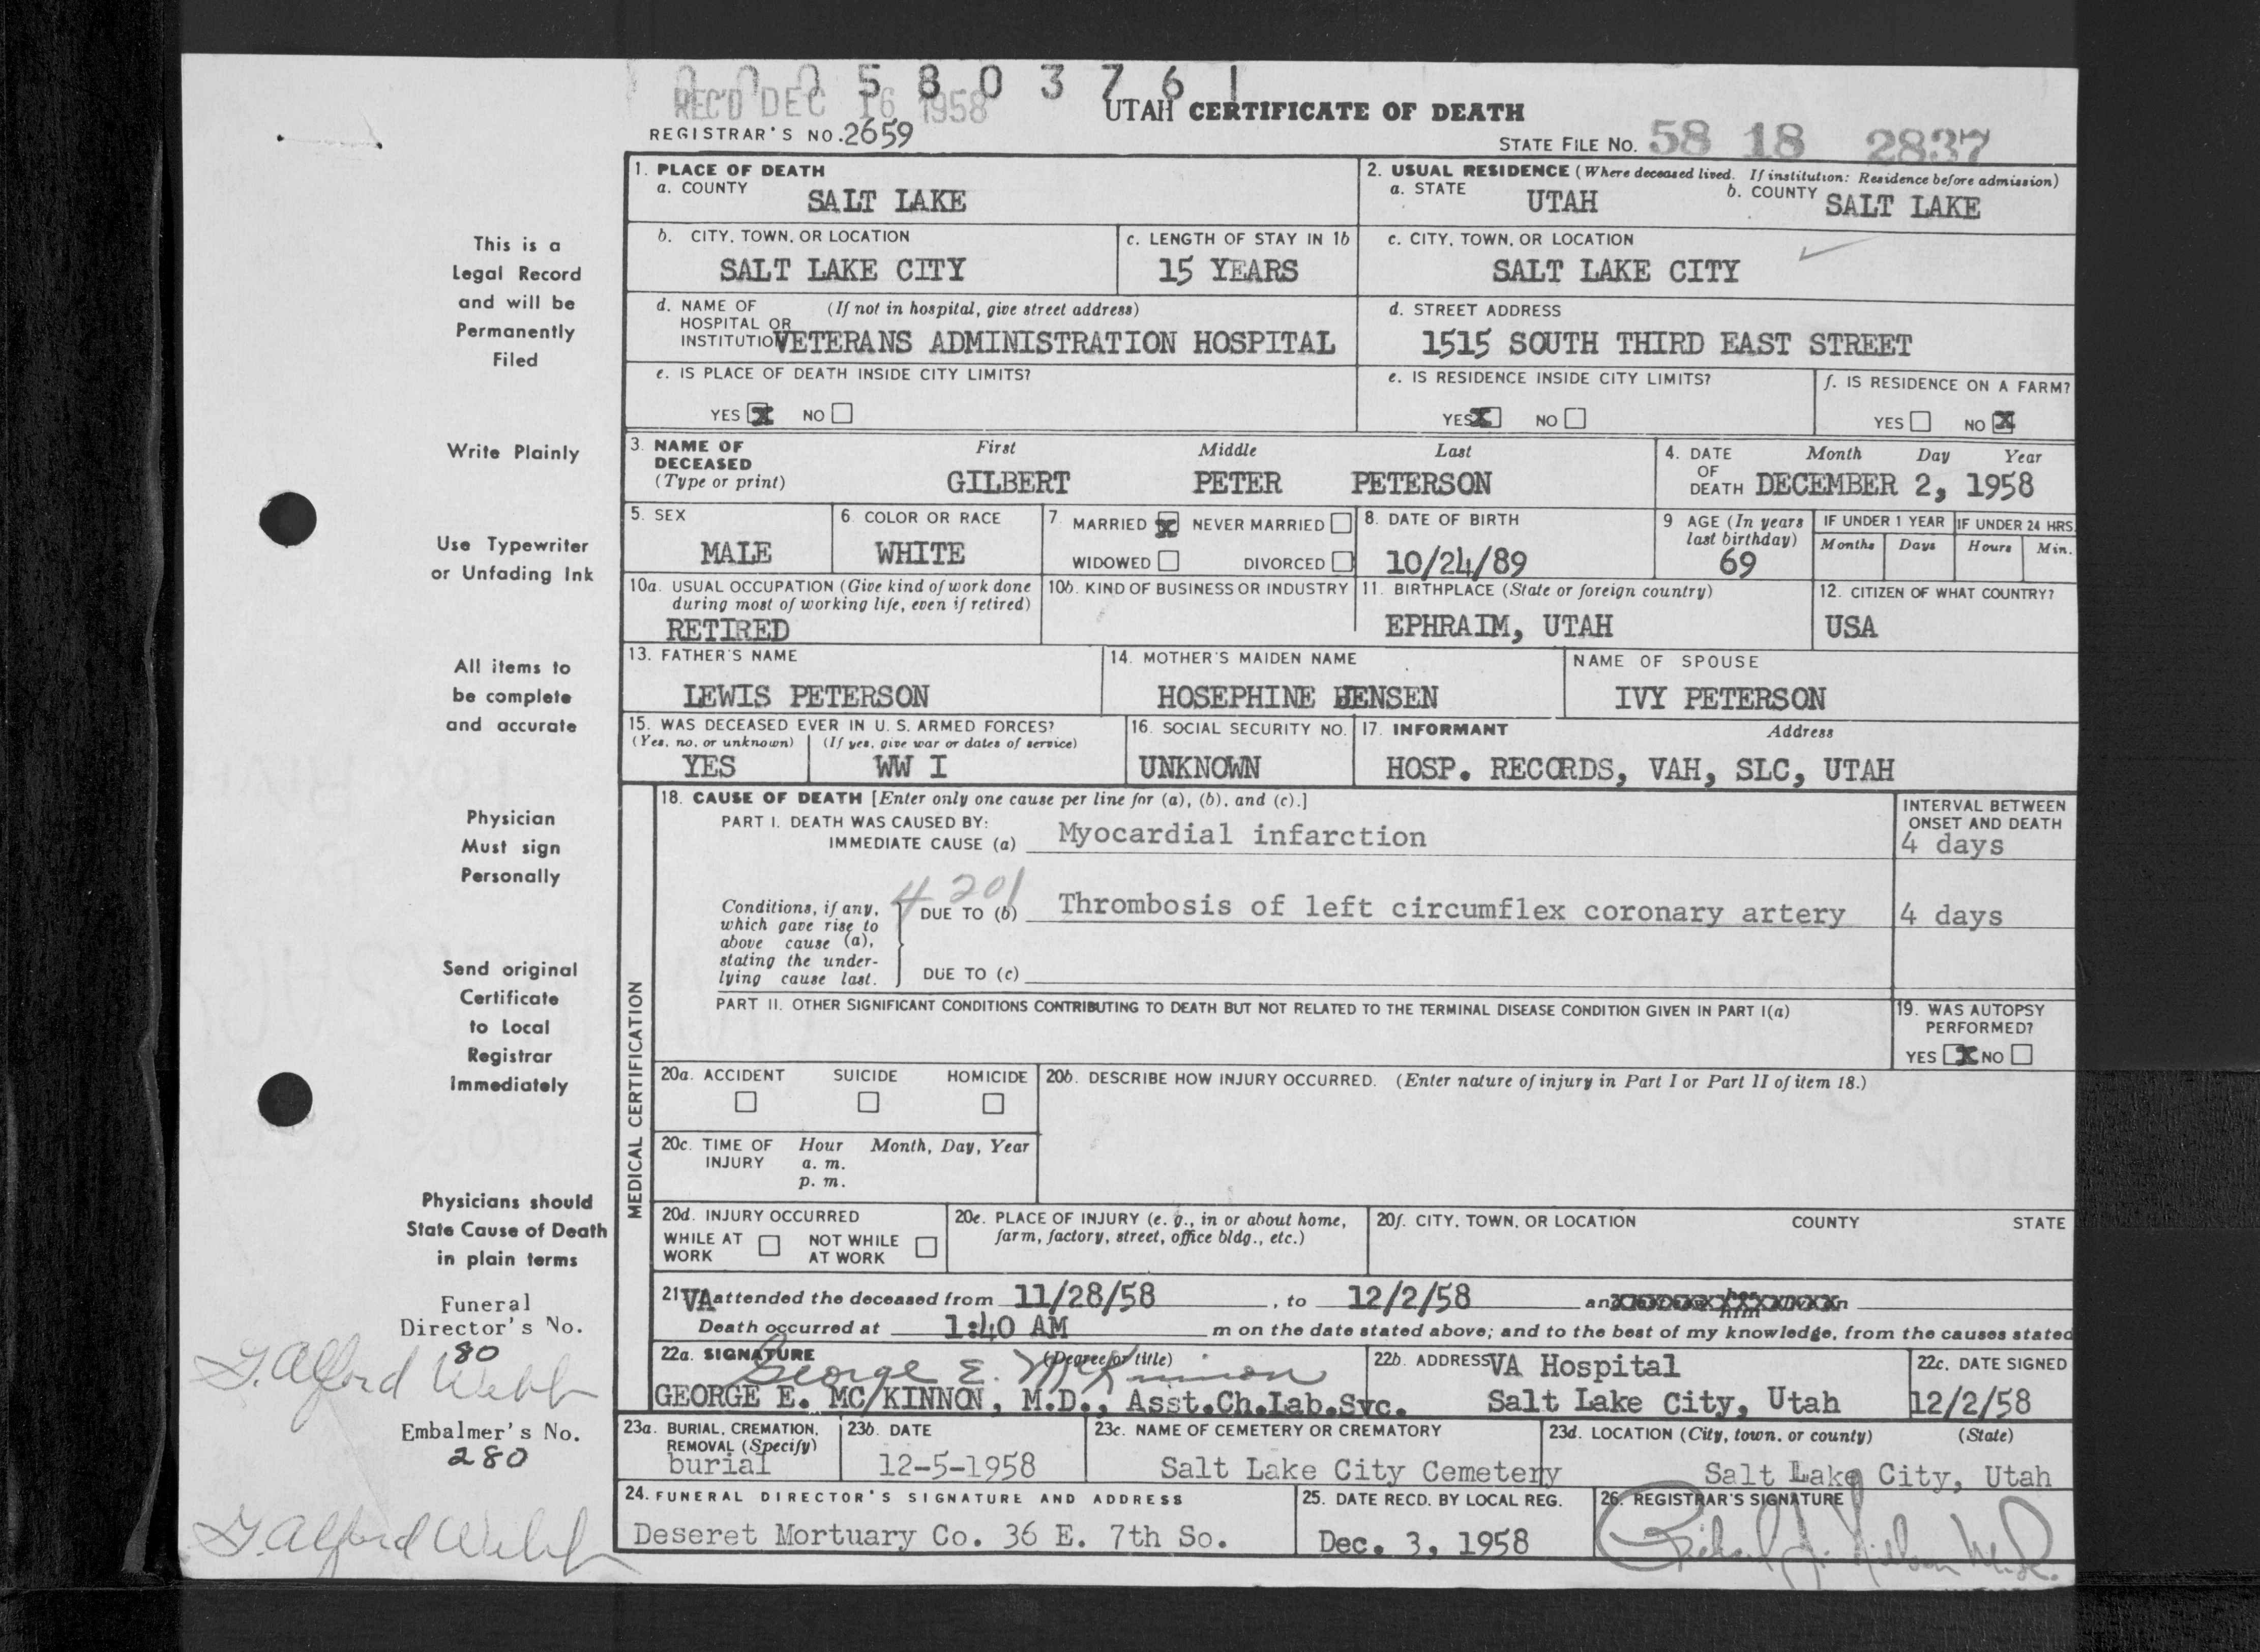 0 0 0 5 8 0 3 7 6 1
REC'D DEC 16 1958
UTAH CERTIFICATE OF DEATH
REGISTRAR'S NO. 2659
STATE FILE NO. 58 18 2837
1. PLACE OF DEATH
a. COUNTY SALT LAKE
2. USUAL RESIDENCE (Where deceased lived. If institution: Residence before admission)
a. STATE UTAH b. COUNTY SALT LAKE
b. CITY, TOWN, OR LOCATION SALT LAKE CITY
c. LENGTH OF STAY IN 1b 15 YEARS
c. CITY, TOWN, OR LOCATION SALT LAKE CITY
d. NAME OF HOSPITAL OR INSTITUTION (If not in hospital, give street address) VETERANS ADMINISTRATION HOSPITAL
d. STREET ADDRESS 1515 SOUTH THIRD EAST STREET
e. IS PLACE OF DEATH INSIDE CITY LIMITS?
YES X NO
e. IS RESIDENCE INSIDE CITY LIMITS?
YES X NO
f. IS RESIDENCE ON A FARM?
YES NO X
3. NAME OF DECEASED (Type or print)
First Middle Last
GILBERT PETER PETERSON
4. DATE OF DEATH Month Day Year
DECEMBER 2, 1958
5. SEX MALE
6. COLOR OR RACE WHITE
7. MARRIED X NEVER MARRIED
WIDOWED DIVORCED
8. DATE OF BIRTH 10/24/89
9 AGE (In years last birthday) 69
IF UNDER 1 YEAR Months Days
IF UNDER 24 HRS. Hours Min.
10a. USUAL OCCUPATION (Give kind of work done during most of working life, even if retired)
RETIRED
10b. KIND OF BUSINESS OR INDUSTRY
11. BIRTHPLACE (State or foreign country)
EPHRAIM, UTAH
12. CITIZEN OF WHAT COUNTRY?
USA
13. FATHER'S NAME
LEWIS PETERSON
14. MOTHER'S MAIDEN NAME
HOSEPHINE HENSEN
NAME OF SPOUSE
IVY PETERSON
15. WAS DECEASED EVER IN U. S. ARMED FORCES?
(Yes, no, or unknown) (If yes, give war or dates of service)
YES WW I
16. SOCIAL SECURITY NO.
UNKNOWN
17. INFORMANT Address
HOSP. RECORDS, VAH, SLC, UTAH
MEDICAL CERTIFICATION
18. CAUSE OF DEATH [Enter only one cause per line for (a), (b), and (c).]
PART I. DEATH WAS CAUSED BY:
IMMEDIATE CAUSE (a) Myocardial infarction
INTERVAL BETWEEN ONSET AND DEATH
4 days
4201
Conditions, if any, which gave rise to above cause (a), stating the underlying cause last.
DUE TO (b) Thrombosis of left circumflex coronary artery 4 days
DUE TO (c)
PART II. OTHER SIGNIFICANT CONDITIONS CONTRIBUTING TO DEATH BUT NOT RELATED TO THE TERMINAL DISEASE CONDITION GIVEN IN PART I(a)
19. WAS AUTOPSY PERFORMED?
YES X NO
20a. ACCIDENT SUICIDE HOMICIDE
20b. DESCRIBE HOW INJURY OCCURRED. (Enter nature of injury in Part I or Part II of item 18.)
20c. TIME OF INJURY Hour Month, Day, Year
a. m.
p. m.
20d. INJURY OCCURRED
WHILE AT WORK NOT WHILE AT WORK
20e. PLACE OF INJURY (e. g., in or about home, farm, factory, street, office bldg., etc.)
20f. CITY, TOWN, OR LOCATION COUNTY STATE
21 VA attended the deceased from 11/28/58, to 12/2/58 and
Death occurred at 1:40 AM m on the date stated above; and to the best of my knowledge, from the causes stated
22a. SIGNATURE (Degree or title)
George E. McKinnon
GEORGE E. MC KINNON, M.D., Asst.Ch.Lab.Svc.
22b. ADDRESS VA Hospital
Salt Lake City, Utah
22c. DATE SIGNED
12/2/58
23a. BURIAL, CREMATION, REMOVAL (Specify)
burial
23b. DATE
12-5-1958
23c. NAME OF CEMETERY OR CREMATORY
Salt Lake City Cemetery
23d. LOCATION (City, town, or county) (State)
Salt Lake City, Utah
24. FUNERAL DIRECTOR'S SIGNATURE AND ADDRESS
Deseret Mortuary Co. 36 E. 7th So.
25. DATE RECD. BY LOCAL REG.
Dec. 3, 1958
26. REGISTRAR'S SIGNATURE
This is a
Legal Record
and will be
Permanently
Filed
Write Plainly
Use Typewriter
or Unfading Ink
All items to
be complete
and accurate
Physician
Must sign
Personally
Send original
Certificate
to Local
Registrar
Immediately
Physicians should
State Cause of Death
in plain terms
Funeral
Director's No.
80
G. Alford Webb
Embalmer's No.
280
G. Alford Webb